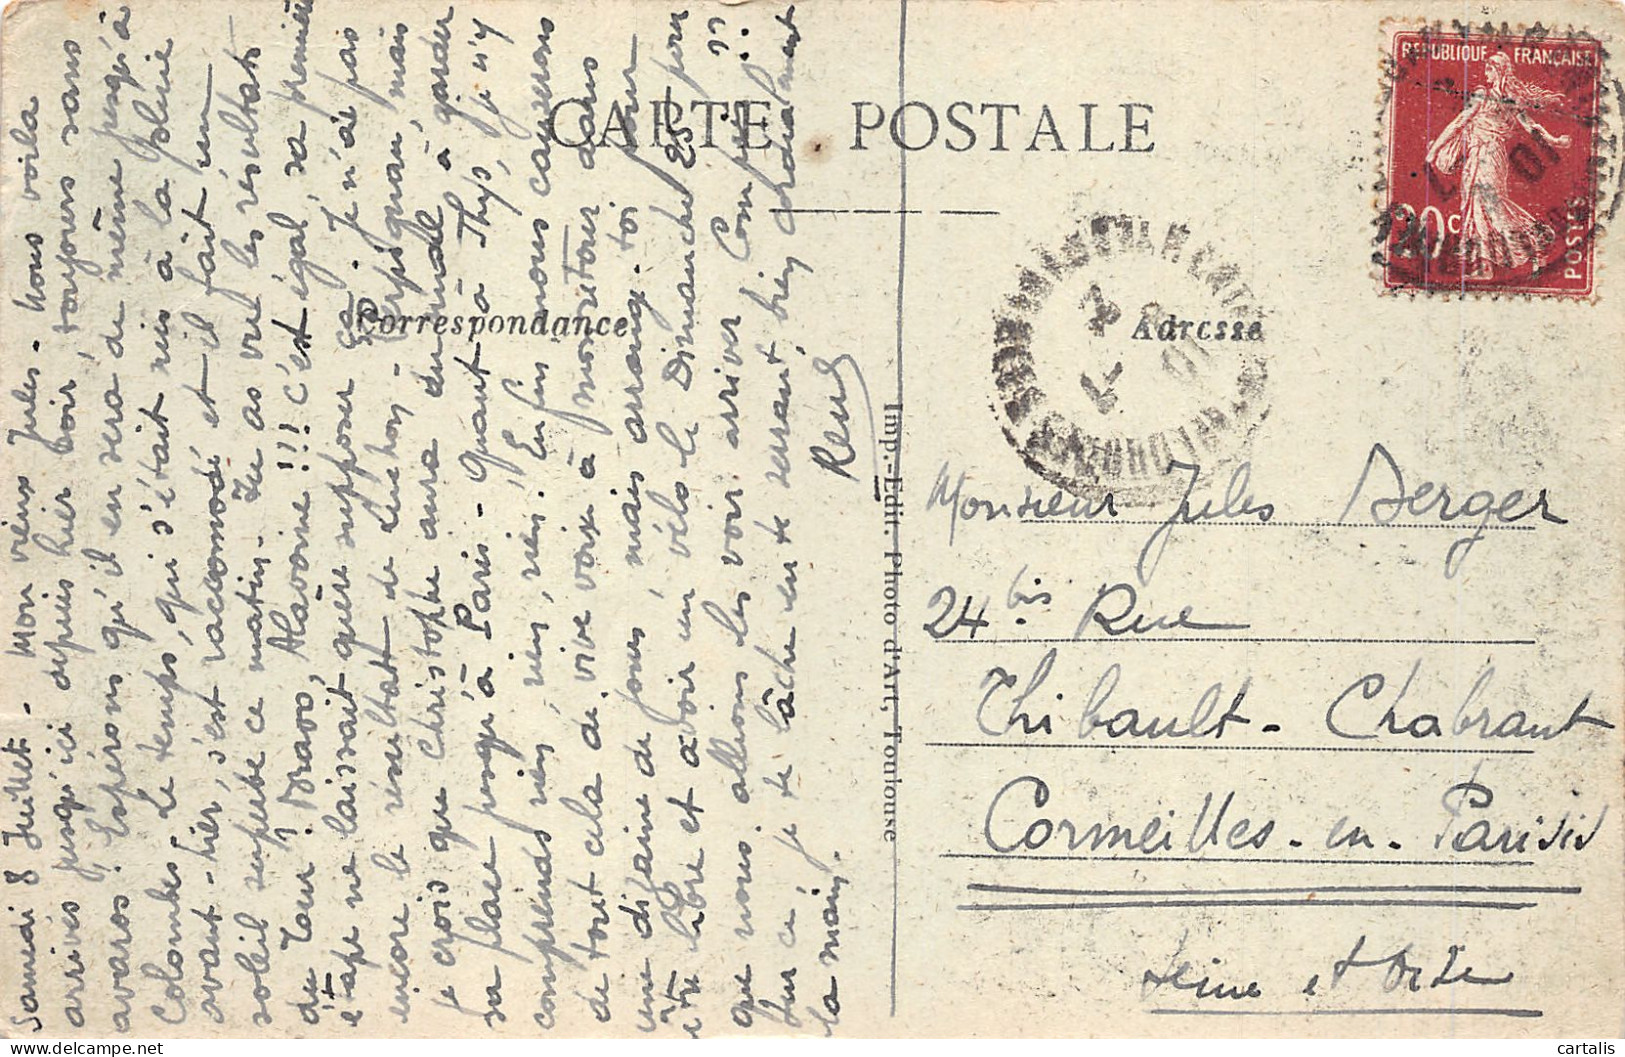 CARTE POSTALE
Correspondance
Adresse
REPUBLIQUE FRANÇAISE
20c
POSTES
Samedi 8 Juillet - Mon vieux Jules - Nous voila
arrivés jusqu'ici depuis hier soir, toujours sans
avaros! Espérons qu'il en sera de même jusqu'à
Colombes. Le temps, qui s'était mis à la pluie
avant-hier, s'est raccommodé et il fait un
soleil superbe ce matin - Tu as vu les résultats
du Tour! Bravo, Alavoine!!! C'est égal, sa première
étape ne laissait guère supposer ça. Je n'ai pas
encore le résultat de Luchon - Perpignan, mais
je crois que Christophe aura du mal à garder
sa place jusqu'à Paris - Quant à Thys, je n'y
comprends rien, rien, rien! Enfin nous causerons
de tout cela de vive voix à mon retour dans
une dizaine de jours, mais arrange-toi pour
être libre et avoir un vélo le Dimanche 23 pour
que nous allions les voir arriver Compris??
Sur ce, je te lâche en te serrant bien cordialement
la main.
René
Monsieur Jules Berger
24 bis Rue
Thibault-Chabrant
Cormeilles-en-Parisis
Seine et Oise
Imp.-Edit. Photo d'Art, Toulouse
cartalis